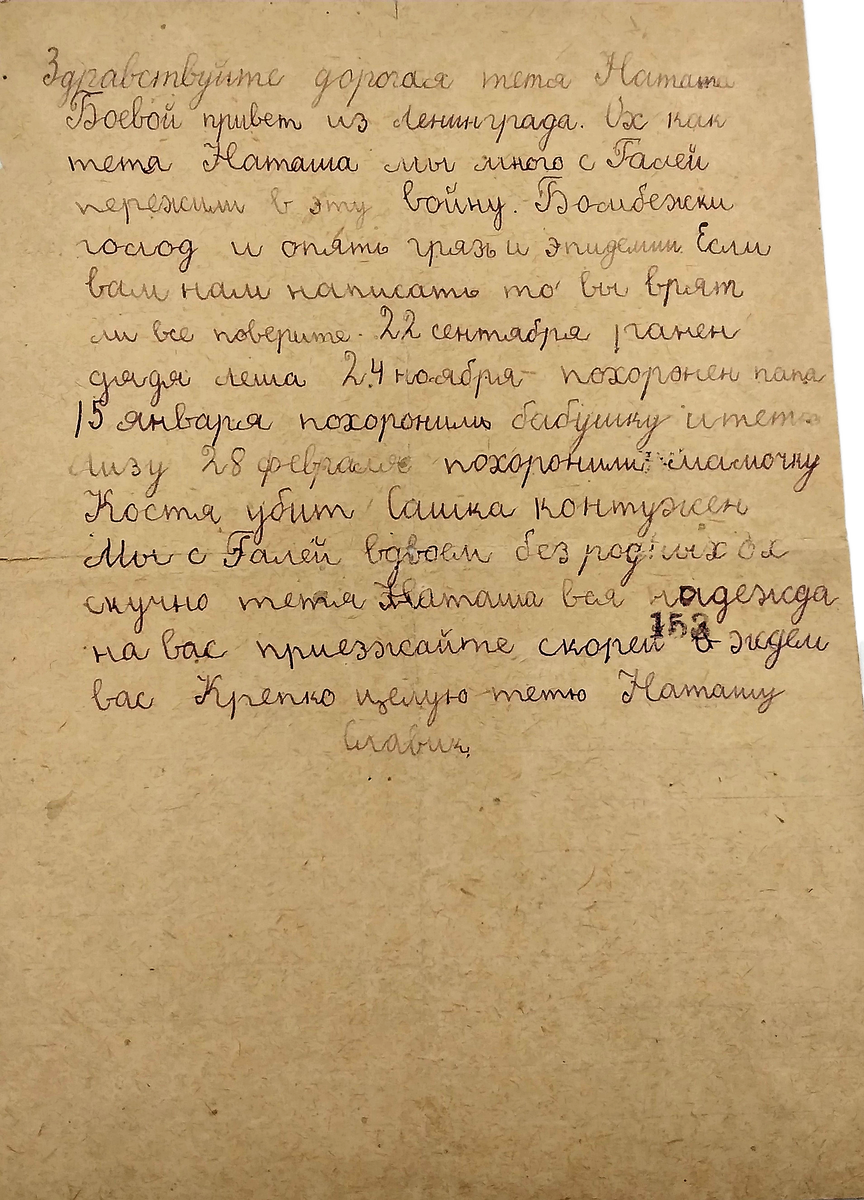 Здравствуйте дорогая тетя Наташа
Боевой привет из Ленинграда. Ох как
тетя Наташа мы много с Галей
пережили в эту войну. Бомбежки
голод и опять грязь и эпидемии. Если
вам нам написать то вы врят
ли все поверите. 22 сентября ранен
дядя леша 24 ноября похоронен папа
15 января похоронили бабушку и тетю
лизу 28 февраля похоронили мамочку
Костя убит Сашка контужен
Мы с Галей вдвоем без родных ох
скучно тетя Наташа вся надежда
на вас приезжайте скорей ждем
153
вас Крепко целую тетю Наташу
Славик.